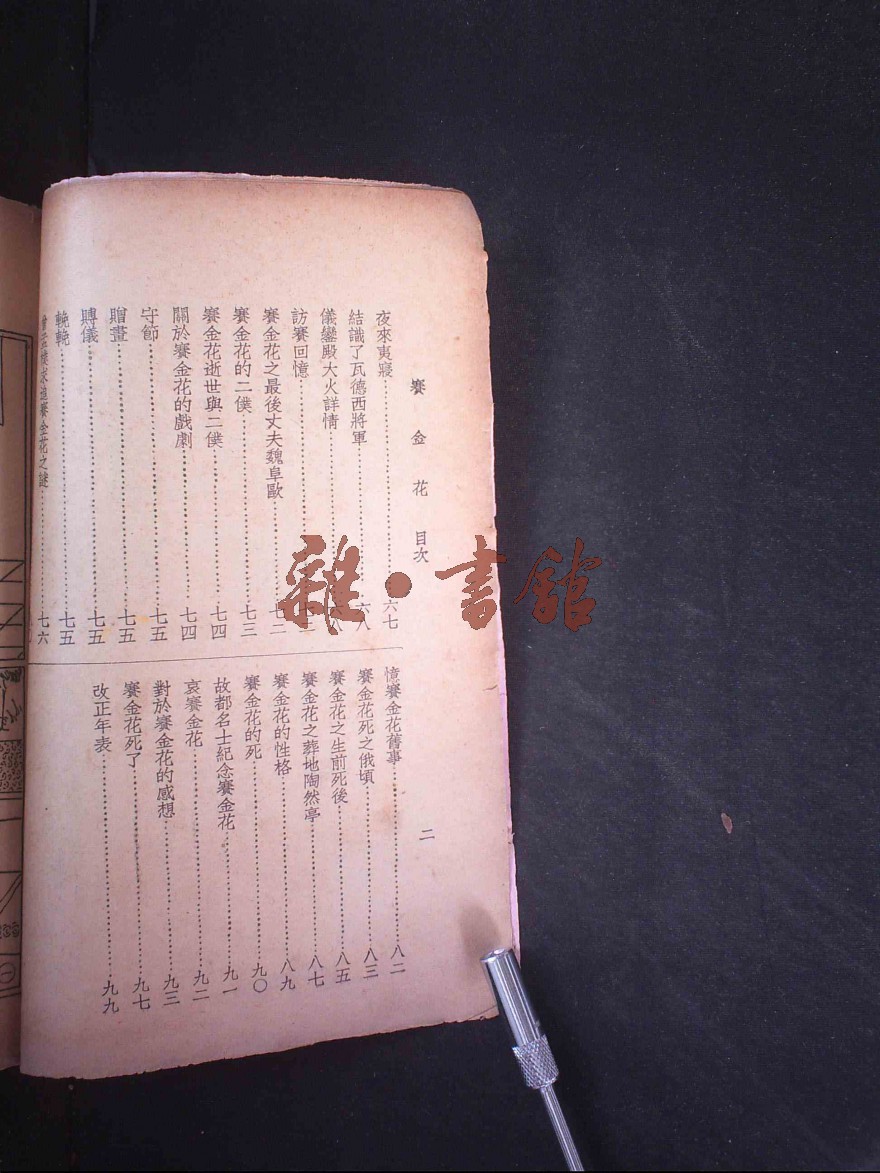 賽金花 目次
夜來夷寢……六七
結識了瓦德西將軍……六八
儀鑾殿大火詳情
訪賽回憶
賽金花之最後丈夫魏阜歐……七二
賽金花的二僕……七三
賽金花逝世與二僕……七四
關於賽金花的戲劇……七四
守節……七五
贈畫……七五
賻儀……七五
輓輓……七五
曾孟樸求追賽金花之謎……七六
憶賽金花舊事……八二
賽金花死之俄頃……八三
賽金花之生前死後……八五
賽金花之葬地陶然亭……八七
賽金花的性格……八九
賽金花的死……九〇
故都名士紀念賽金花……九一
哀賽金花……九二
對於賽金花的感想……九三
賽金花死了……九七
改正年表……九九
二
雜·書館